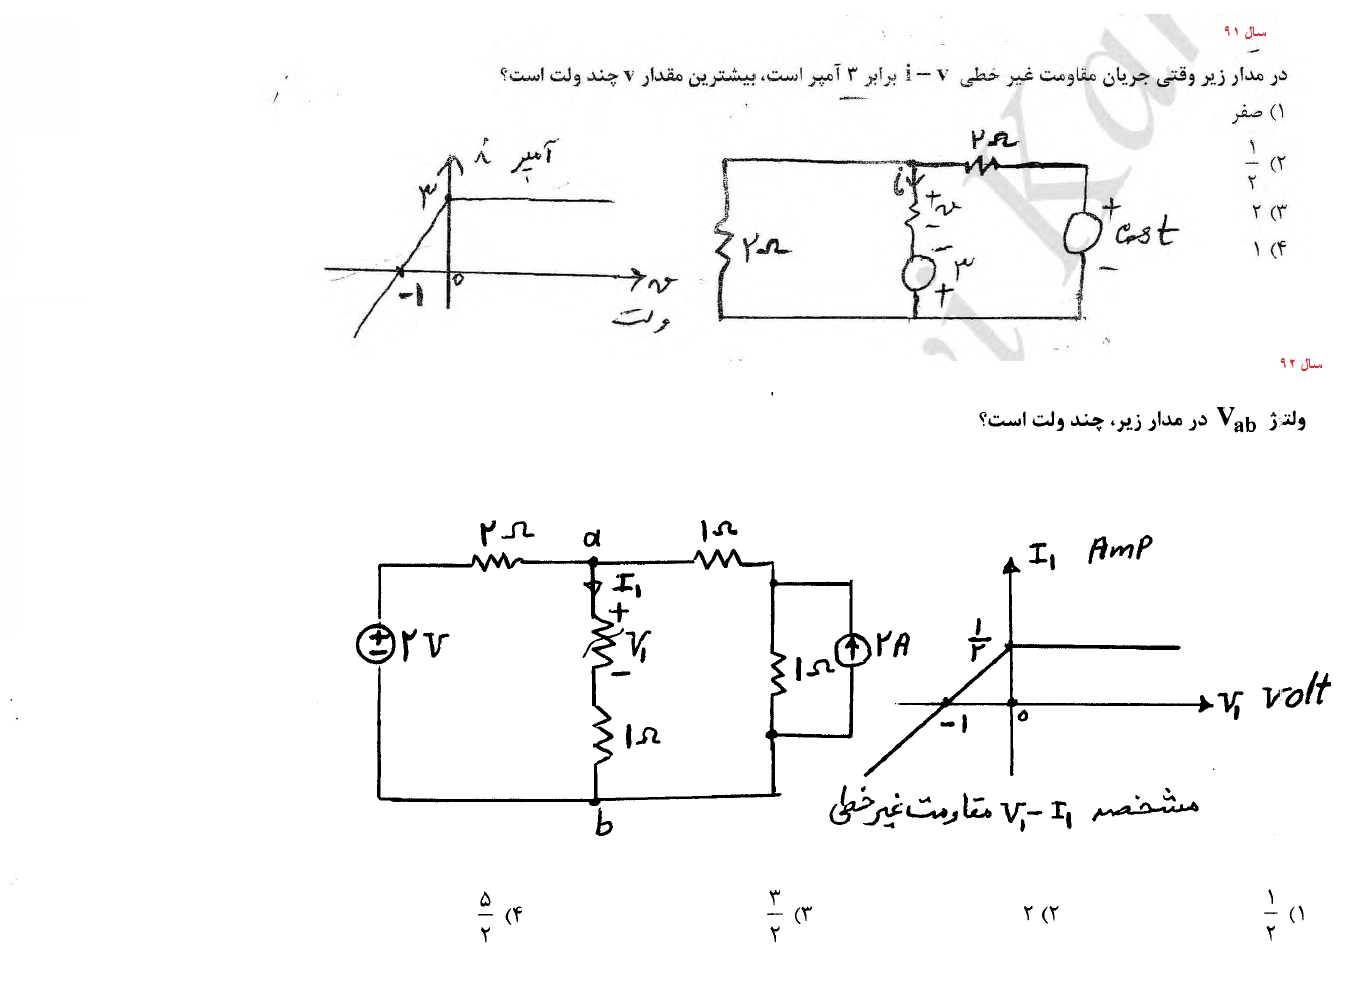 سال ۹۱
در مدار زیر وقتی جریان مقاومت غیر خطی i – v برابر ۳ آمپر است، بیشترین مقدار v چند ولت است؟
۱) صفر
۲) ۱/۲
۳) ۲
۴) ۱
i آمپر
۳
-۱
0
v
ولت
۲Ω
i
+
v
-
-
۳
+
۲Ω
+
Cost
-
سال ۹۲
ولتاژ Vab در مدار زیر، چند ولت است؟
۲Ω
a
۱Ω
I₁
+
V₁
-
۲V
۱Ω
۱Ω
۲A
b
I₁ Amp
۱/۲
-۱
0
V₁ Volt
مشخصه V₁ – I₁ مقاومت غیر خطی
۱) ۱/۲
۲) ۲
۳) ۳/۲
۴) ۵/۲